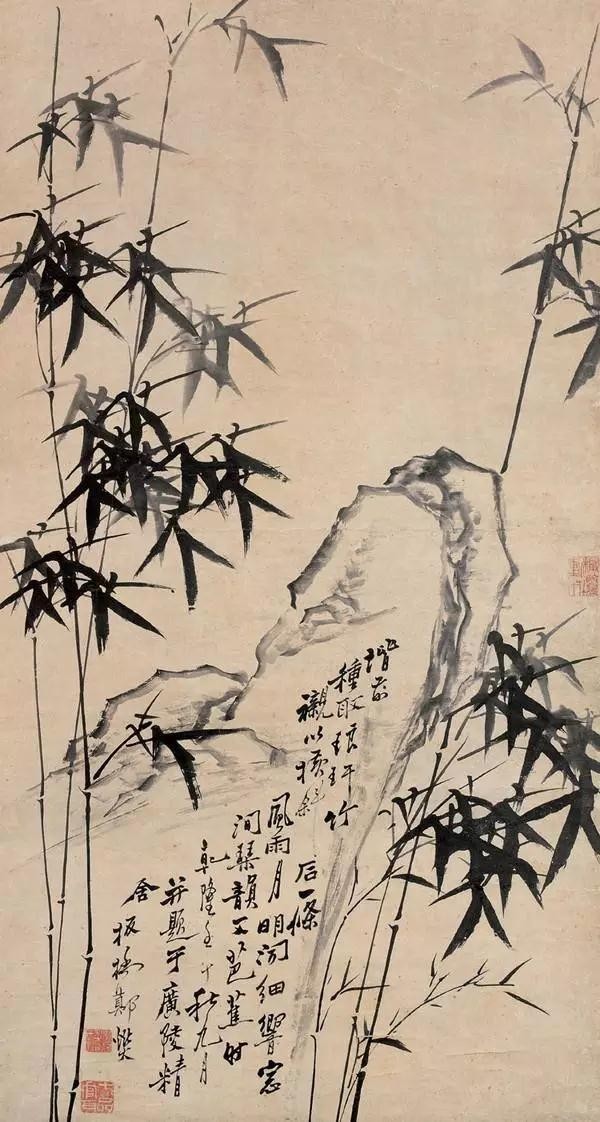 堦前
種取琅玕竹
襯以橫斜石一條
風雨月明聞細響窓
間琴韻下芭蕉時
乾隆壬午秋九月
并題于廣陵精
舍 板橋鄭燮